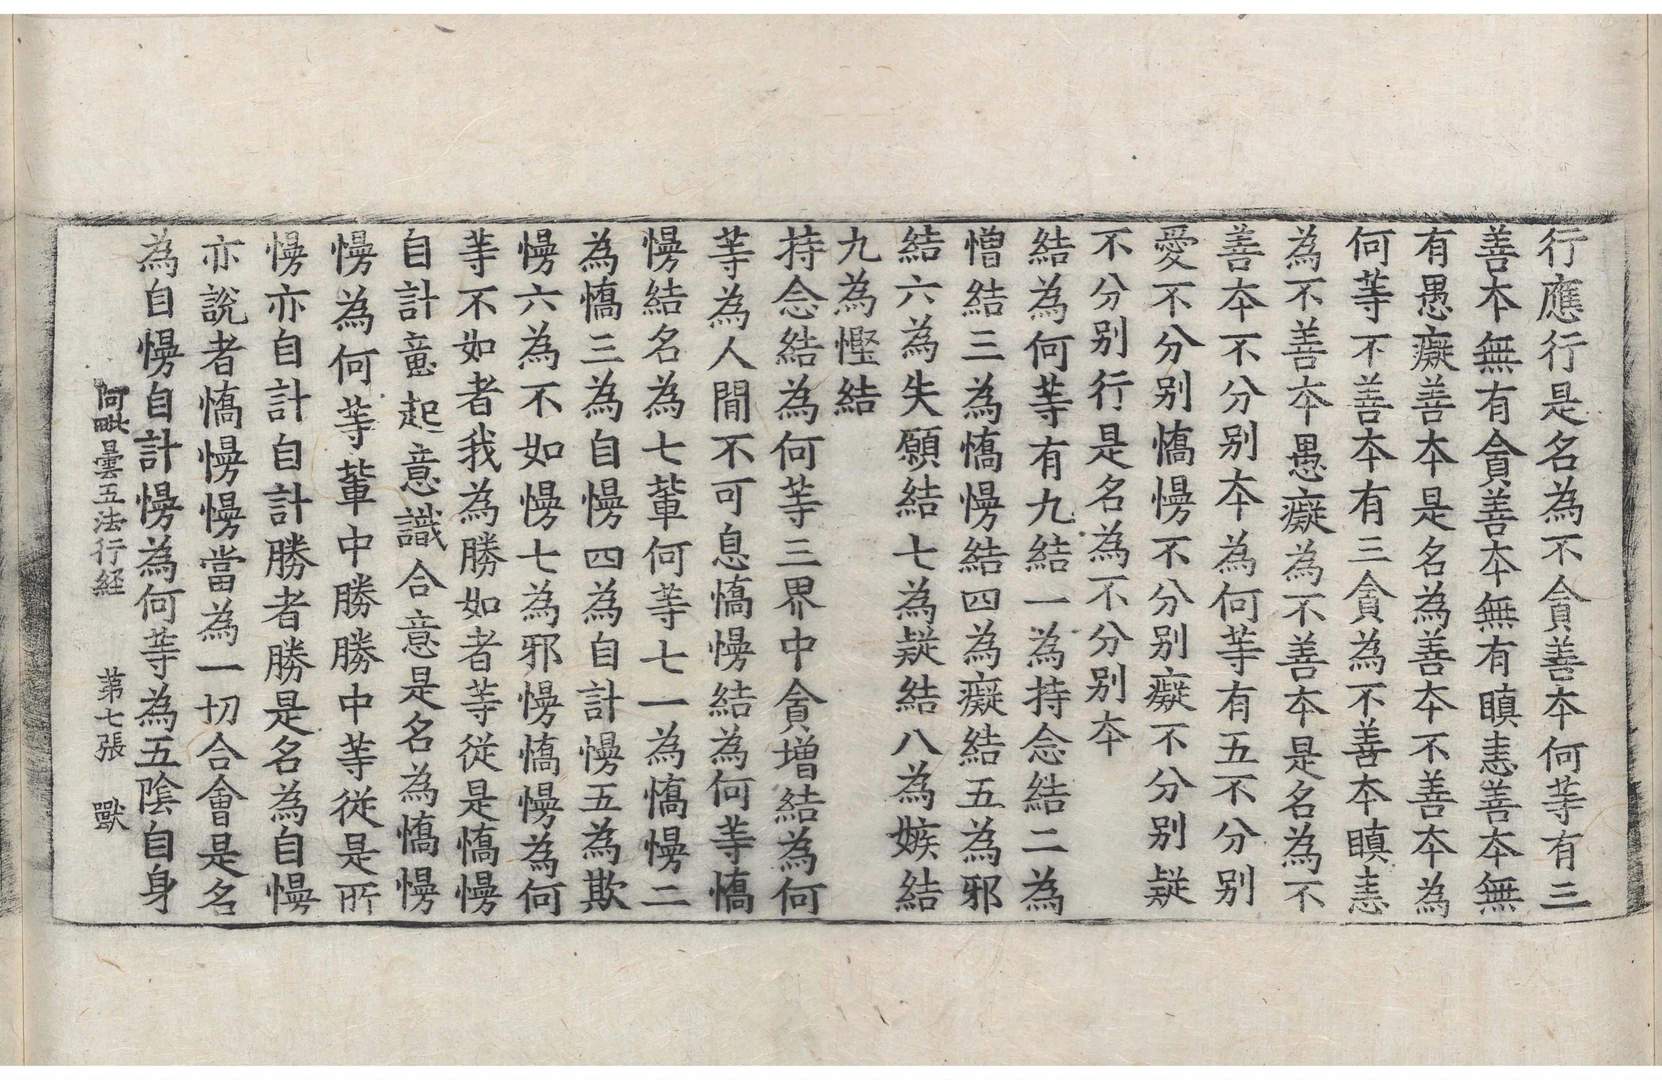 行應行是名為不貪善本何等有三
善本無有貪善本無有瞋恚善本無
有愚癡善本是名為善本不善本為
何等不善本有三貪為不善本瞋恚
為不善本愚癡為不善本是名為不
善本不分別本為何等有五不分別
愛不分別憍慢不分別癡不分別疑
不分別行是名為不分別本
結為何等有九結一為持念結二為
憎結三為憍慢結四為癡結五為邪
結六為失願結七為疑結八為嫉結
九為慳結
持念結為何等三界中貪增結為何
等為人閒不可息憍慢結為何等憍
慢結名為七輩何等七一為憍慢二
為憍三為自慢四為自計慢五為欺
慢六為不如慢七為邪慢憍慢為何
等不如者我為勝如者等從是憍慢
自計意起意識合意是名為憍慢
慢為何等輩中勝勝中等從是所
慢亦自計自計勝者勝是名為自慢
亦說者憍慢慢當為一切合會是名
為自慢自計慢為何等為五陰自身
阿毗曇五法行經 第七張 獸